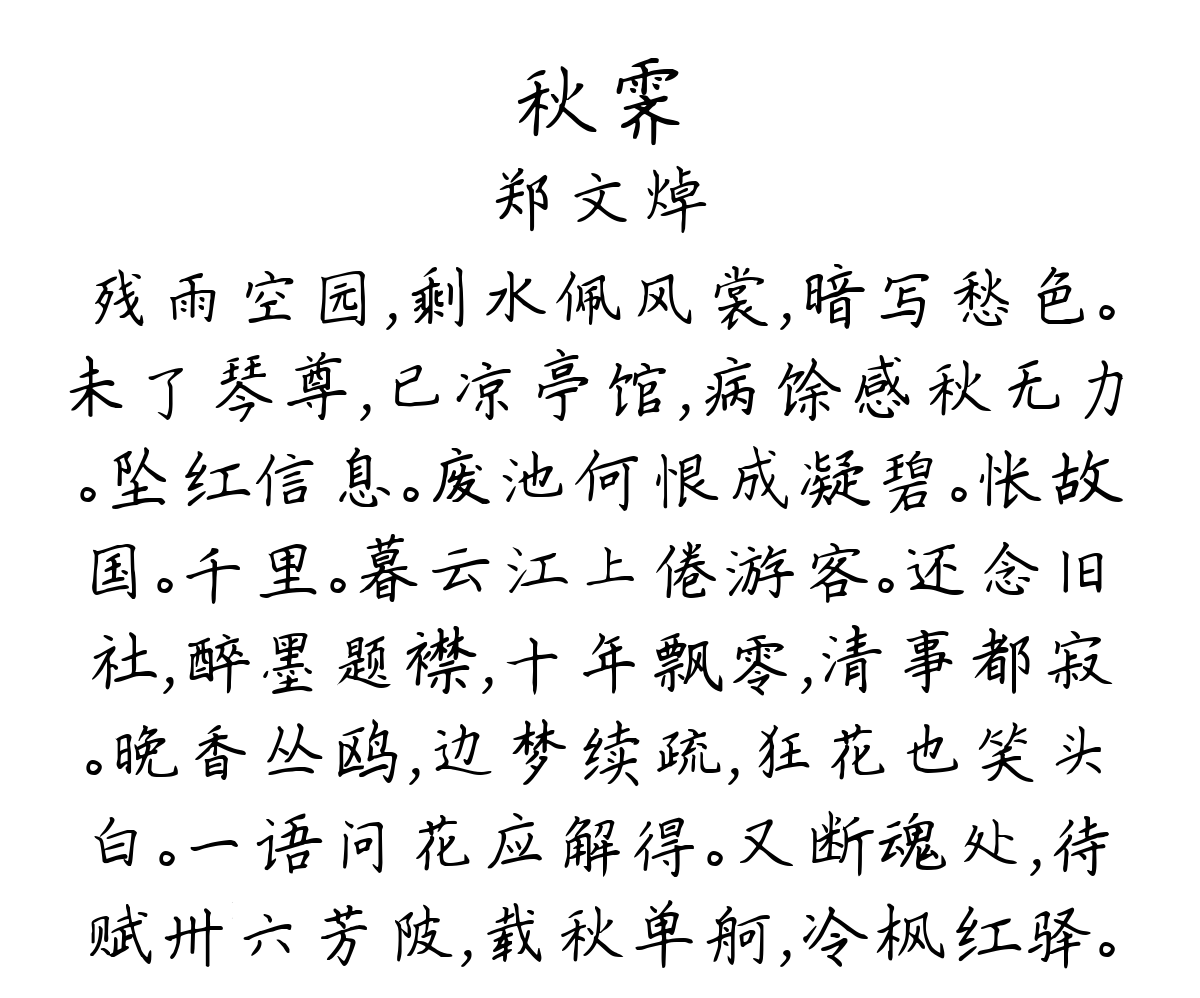 秋霁
郑文焯
残雨空园,剩水佩风裳,暗写愁色。
未了琴尊,已凉亭馆,病馀感秋无力
。坠红信息。废池何恨成凝碧。怅故
国。千里。暮云江上倦游客。还念旧
社,醉墨题襟,十年飘零,清事都寂
。晚香丛鸥,边梦续疏,狂花也笑头
白。一语问花应解得。又断魂处,待
赋卅六芳陂,载秋单舸,冷枫红驿。